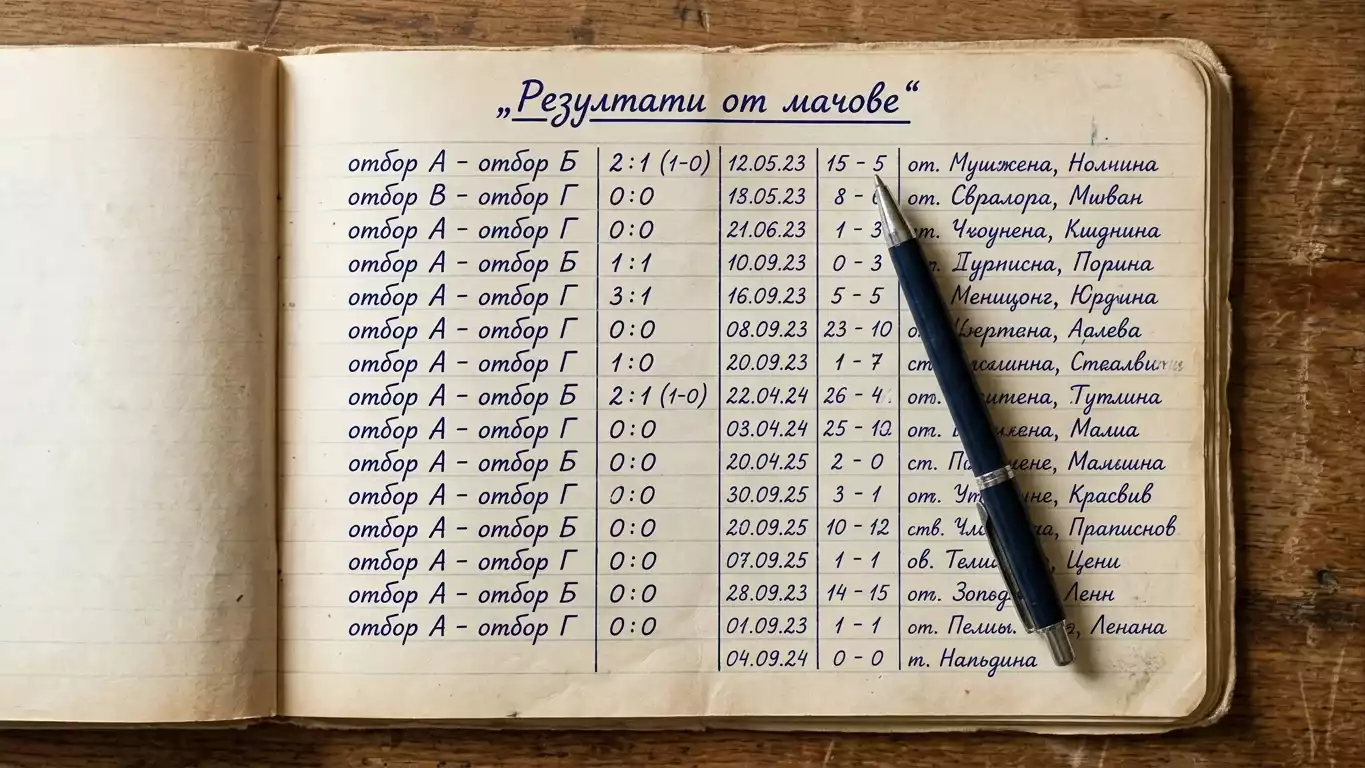 „Резултати от мачове“
отбор А - отбор Б 2:1 (1-0) 12.05.23 15 - 5 от. Мушжена, Нолчина
отбор В - отбор Г 0:0 18.05.23 8 - от. Свралора, Миван
отбор А - отбор Г 0:0 21.06.23 1 - 3 Чкоунена, Кшднина
отбор А - отбор Б 1:1 10.09.23 0 - 3 Дурписна, Порина
отбор А - отбор Г 3:1 16.09.23 5 - 5 Меницонг, Юрдина
отбор А - отбор Г 0:0 08.09.23 23 - 10 Адлева
отбор А - отбор Г 1:0 20.09.23 1 - 7
отбор А - отбор Б 2:1 (1-0) 22.04.24 26 - 4 от. Тутлина
отбор А - отбор Г 0:0 03.04.24 25 - 10 от. Малиа
отбор А - отбор Б 0:0 20.04.25 2 - 0 ст. Малешна
отбор А - отбор Г 0:0 30.09.25 3 - 1 от. Красвив
отбор А - отбор Б 0:0 20.09.25 10 - 12 ств. Праписнов
отбор А - отбор Г 0:0 07.09.25 1 - 1 ов. Цени
отбор А - отбор Б 0:0 28.09.23 14 - 15 от. Ленн
отбор А - отбор Г 0:0 01.09.23 1 - 1 от. Ленана
04.09.24 0 - 0 т. Напьдина